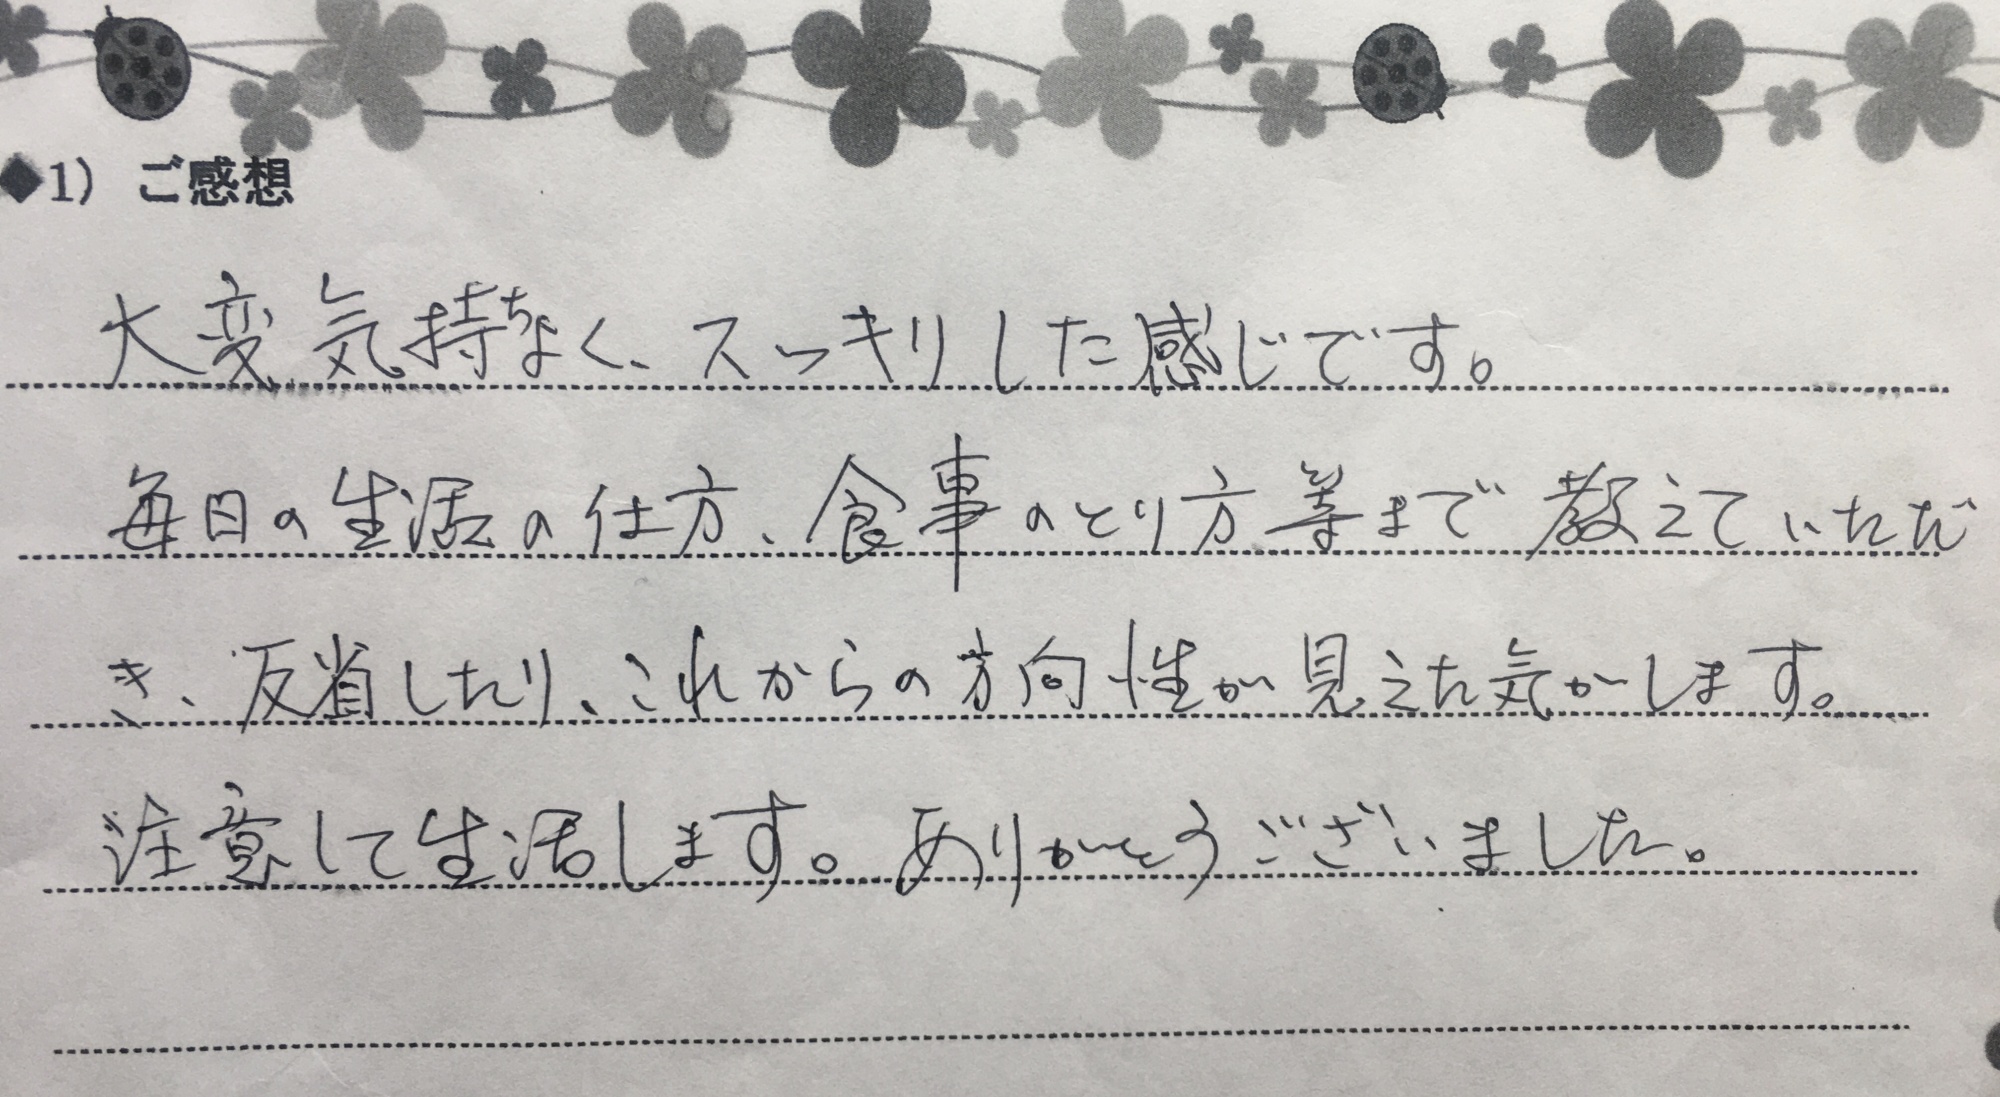 ◆1) ご感想
大変気持ちよく、スッキリした感じです。
毎日の生活の仕方、食事のとり方等まで教えていただ
き、反省したり、これからの方向性が見えた気がします。
注意して生活します。ありがとうございました。